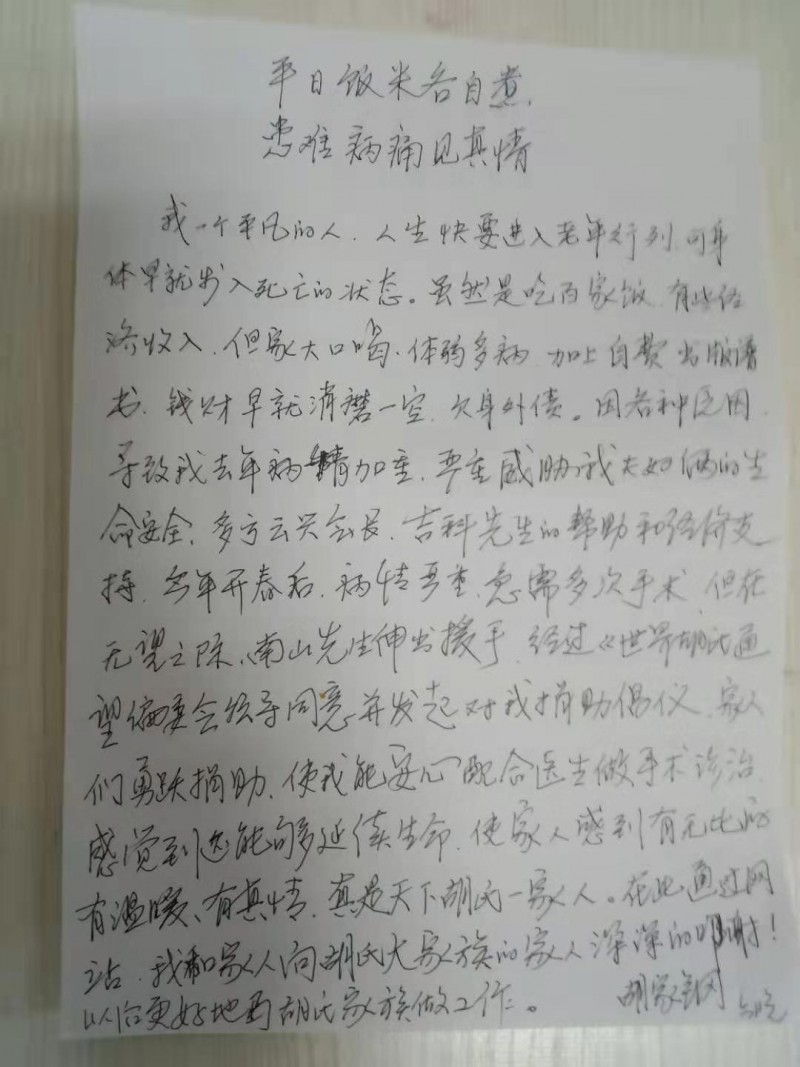 平日饭米各自煮.
患难病痛见真情
我一个平凡的人.人生快要进入老年行列.可身
体早就步入死亡的状态。虽然是吃百家饭.有些经
济收入.但家大口喝.体弱多病.加上自费出版谱
书.钱财早就消磨一空.欠身外债。因各种原因.
导致我去年病情加重.严重威胁我夫妇俩的生
命安全.多亏云兴会长.吉科先生的帮助和经济支
持.今年开春后.病情严重.急需多次手术.但在
无望之际、南山先生伸出援手.经过《世界胡氏通
望编委会领导同意并发起对我捐助倡仪.家人
们勇跃捐助.使我能安心配合医生做手术诊治.
感觉到还能够多延续生命.使家人感到有无比的
有温暖、有真情.真是天下胡氏一家人。在此通过网
站.我和家人向胡氏大家族的家人深深的叩谢!
以后更好地为胡氏家族做工作。 胡家